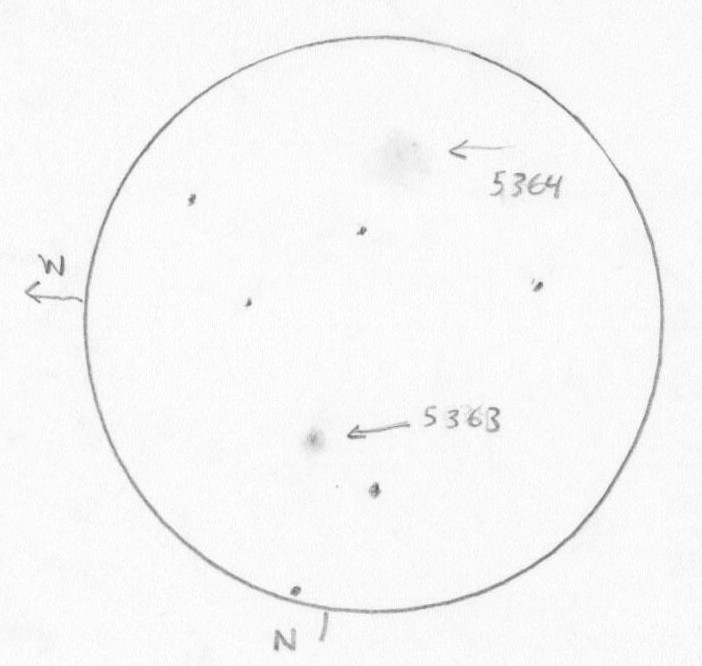 5364
W
5363
N